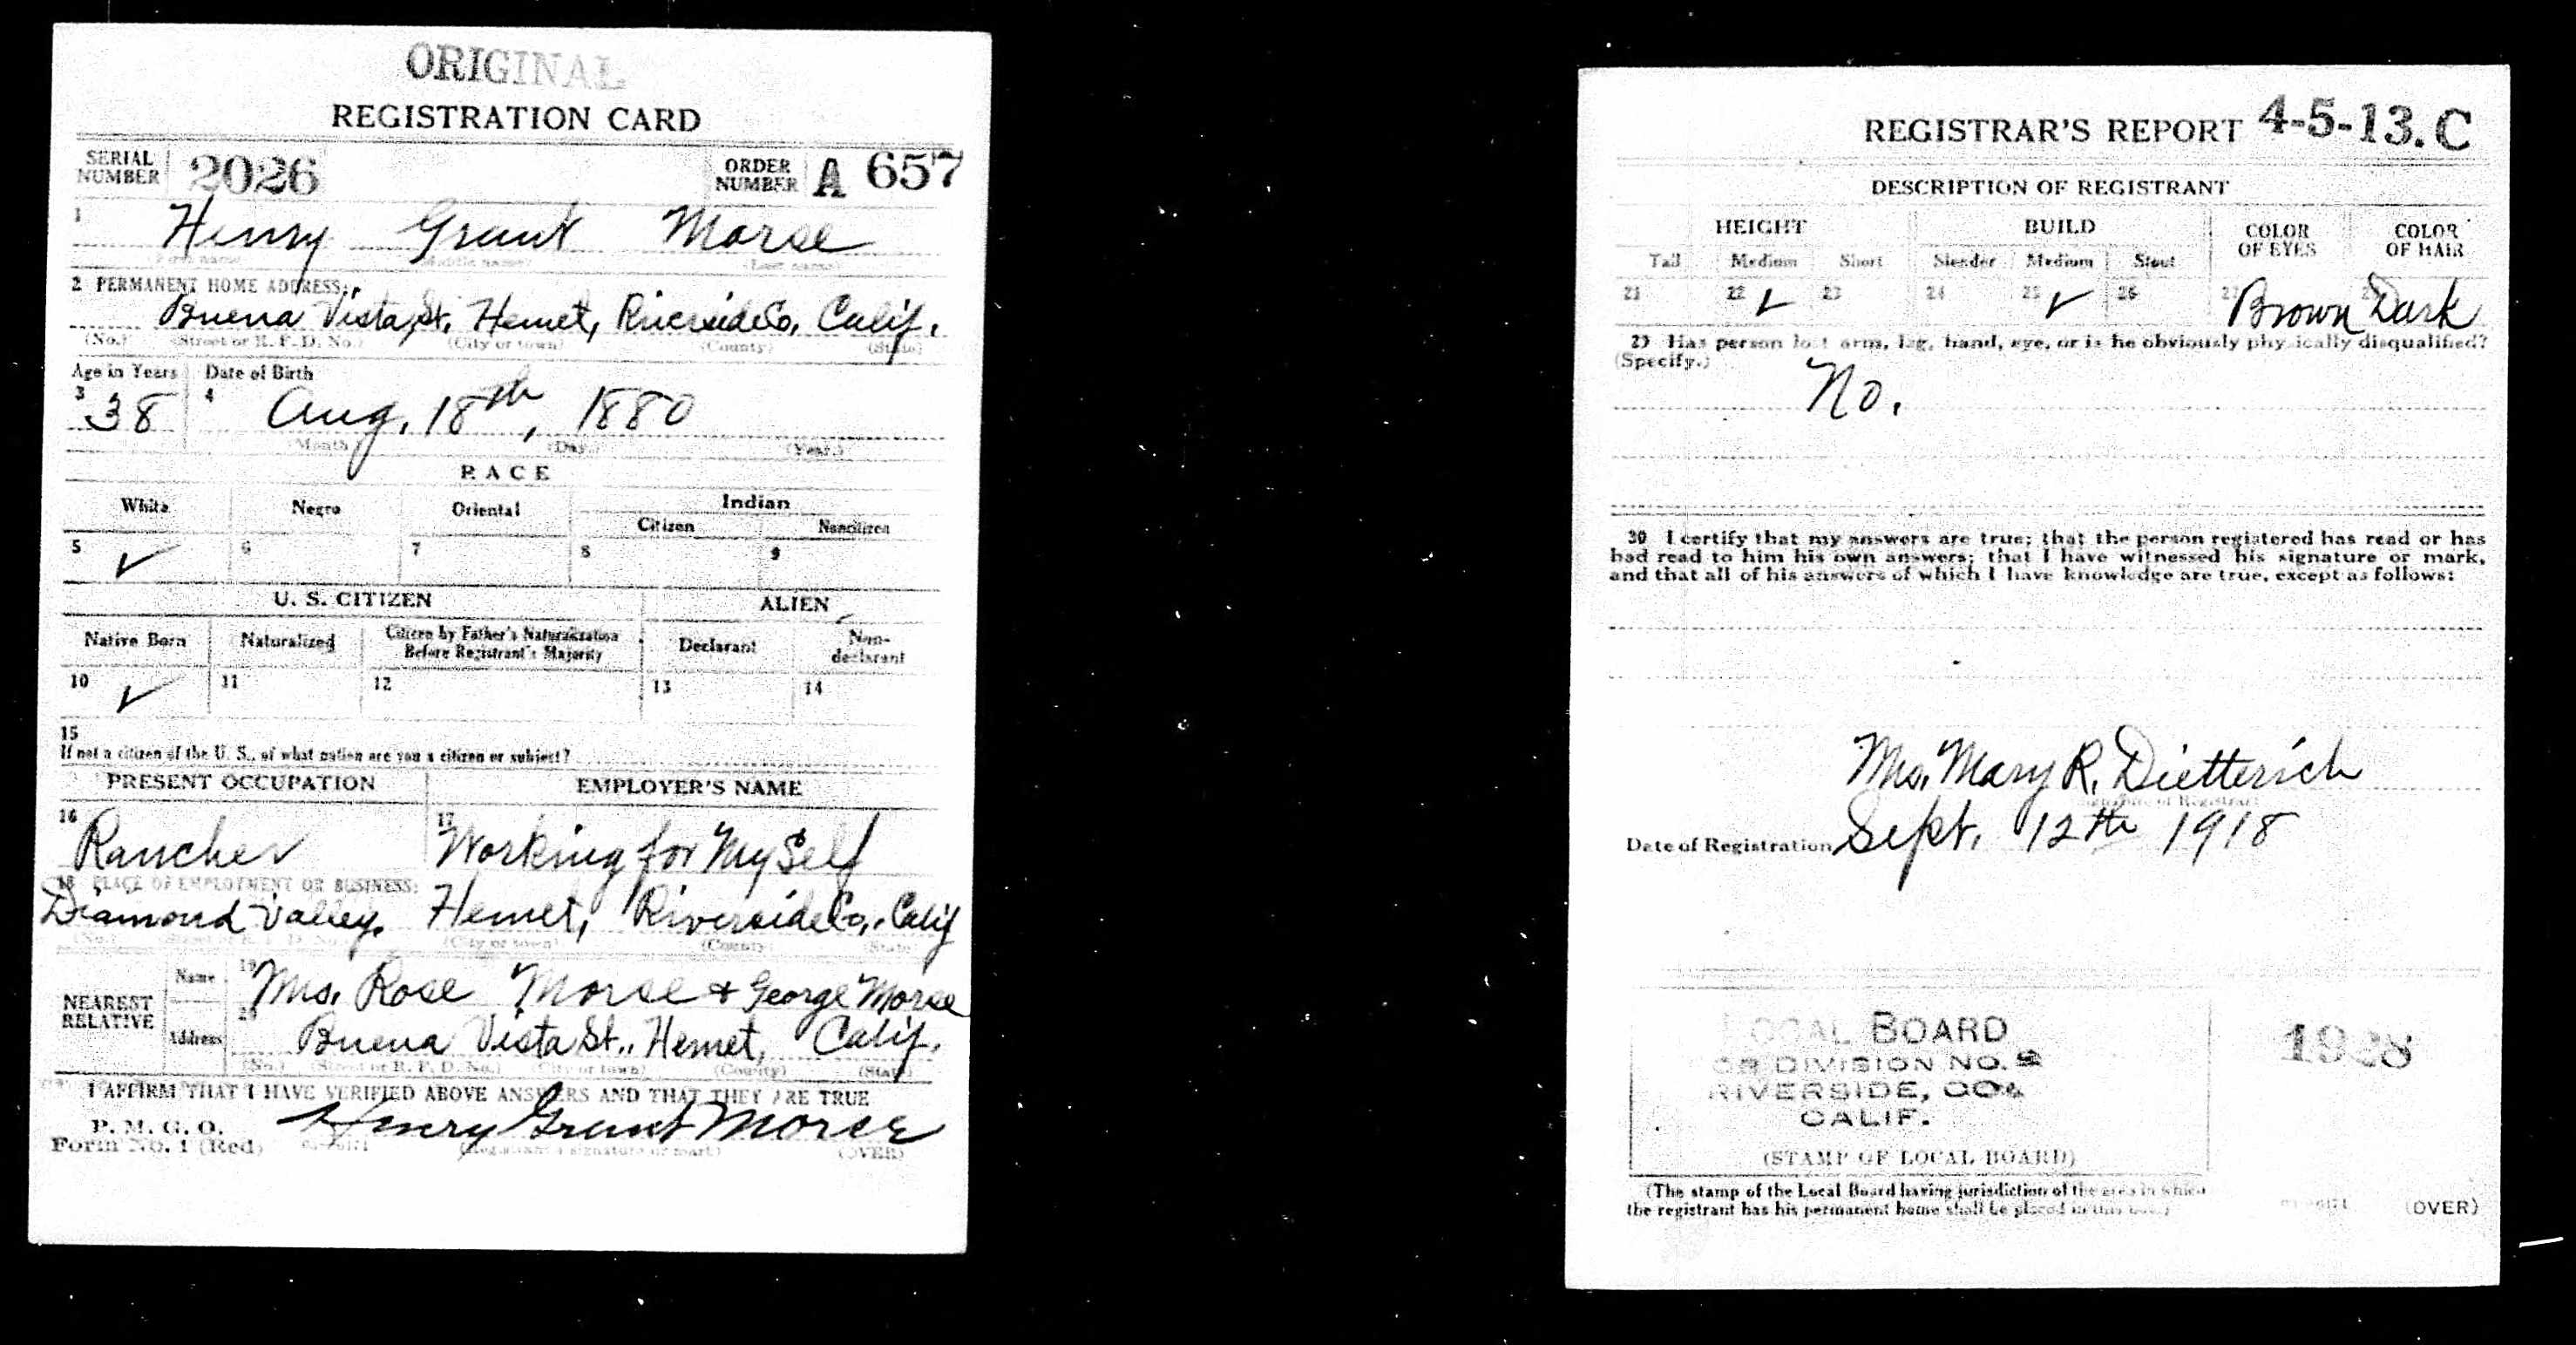 ORIGINAL
REGISTRATION CARD
SERIAL NUMBER 2026 ORDER NUMBER A 657
1 Henry Grant Morse
(First name) (Middle name) (Last name)
2 PERMANENT HOME ADDRESS:
Buena Vista St. Hemet, Riverside Co, Calif.
(No.) (Street or R. F. D. No.) (City or town) (County) (State)
Age in Years Date of Birth
3 38 4 Aug. 18th, 1880
(Month.) (Day.) (Year.)
RACE
White Negro Oriental Indian
Citizen Noncitizen
5 ✓ 6 7 8 9
U. S. CITIZEN ALIEN
Native Born Naturalized Citizen by Father's Naturalization Before Registrant's Majority Declarant Non-declarant
10 ✓ 11 12 13 14
15
If not a citizen of the U. S., of what nation are you a citizen or subject?
PRESENT OCCUPATION EMPLOYER'S NAME
16 Rancher 17 Working for My Self
18 PLACE OF EMPLOYMENT OR BUSINESS:
Diamond Valley. Hemet, Riverside Co., Calif
(No.) (Street or R. F. D. No.) (City or town) (County) (State)
NEAREST RELATIVE
Name 19 Mrs. Rose Morse & George Morse
Address 20 Buena Vista St., Hemet, Calif.
(No.) (Street or R. F. D. No.) (City or town) (County) (State)
I AFFIRM THAT I HAVE VERIFIED ABOVE ANSWERS AND THAT THEY ARE TRUE
P. M. G. O.
Form No. 1 (Red) Henry Grant Morse
(Registrant's signature or mark) (OVER)
REGISTRAR'S REPORT 4-5-13. C
DESCRIPTION OF REGISTRANT
HEIGHT BUILD COLOR OF EYES COLOR OF HAIR
Tall Medium Short Slender Medium Stout
21 22 ✓ 23 24 25 ✓ 26 27 Brown 28 Dark
29 Has person lost arm, leg, hand, eye, or is he obviously physically disqualified?
(Specify.)
No.
30 I certify that my answers are true; that the person registered has read or has
had read to him his own answers; that I have witnessed his signature or mark,
and that all of his answers of which I have knowledge are true, except as follows:
Mrs. Mary R. Dietterich
(Signature of Registrar)
Date of Registration Sept. 12th 1918
LOCAL BOARD
DIVISION NO. 2
RIVERSIDE, CO.
CALIF.
(STAMP OF LOCAL BOARD)
(The stamp of the Local Board having jurisdiction of the area in which
the registrant has his permanent home shall be placed in this box.)
(OVER)